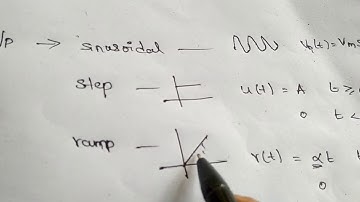 /p → sinusoidal — Vi(t)=Vm
step — u(t) = A t ≥
0 t <
ramp — r(t) = αt
0